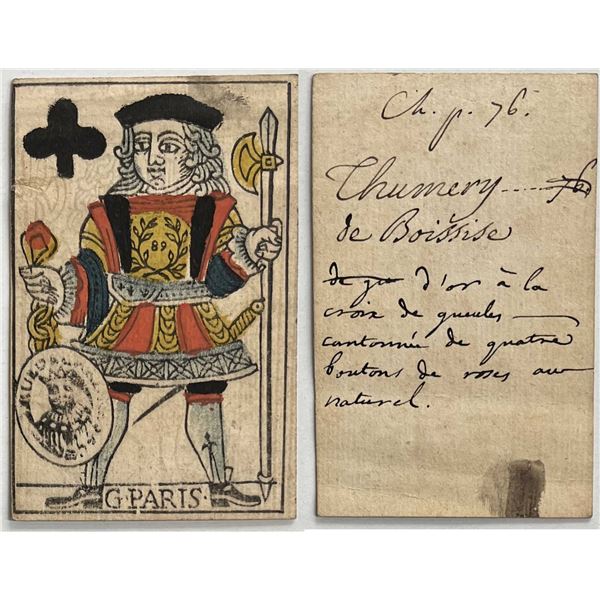 89
G·PARIS·
Ch. p. 76.
Thumery ..... 76
de Boissise
de gu d'or à la
croix de gueules
cantonnée de quatre
boutons de roses au
naturel.